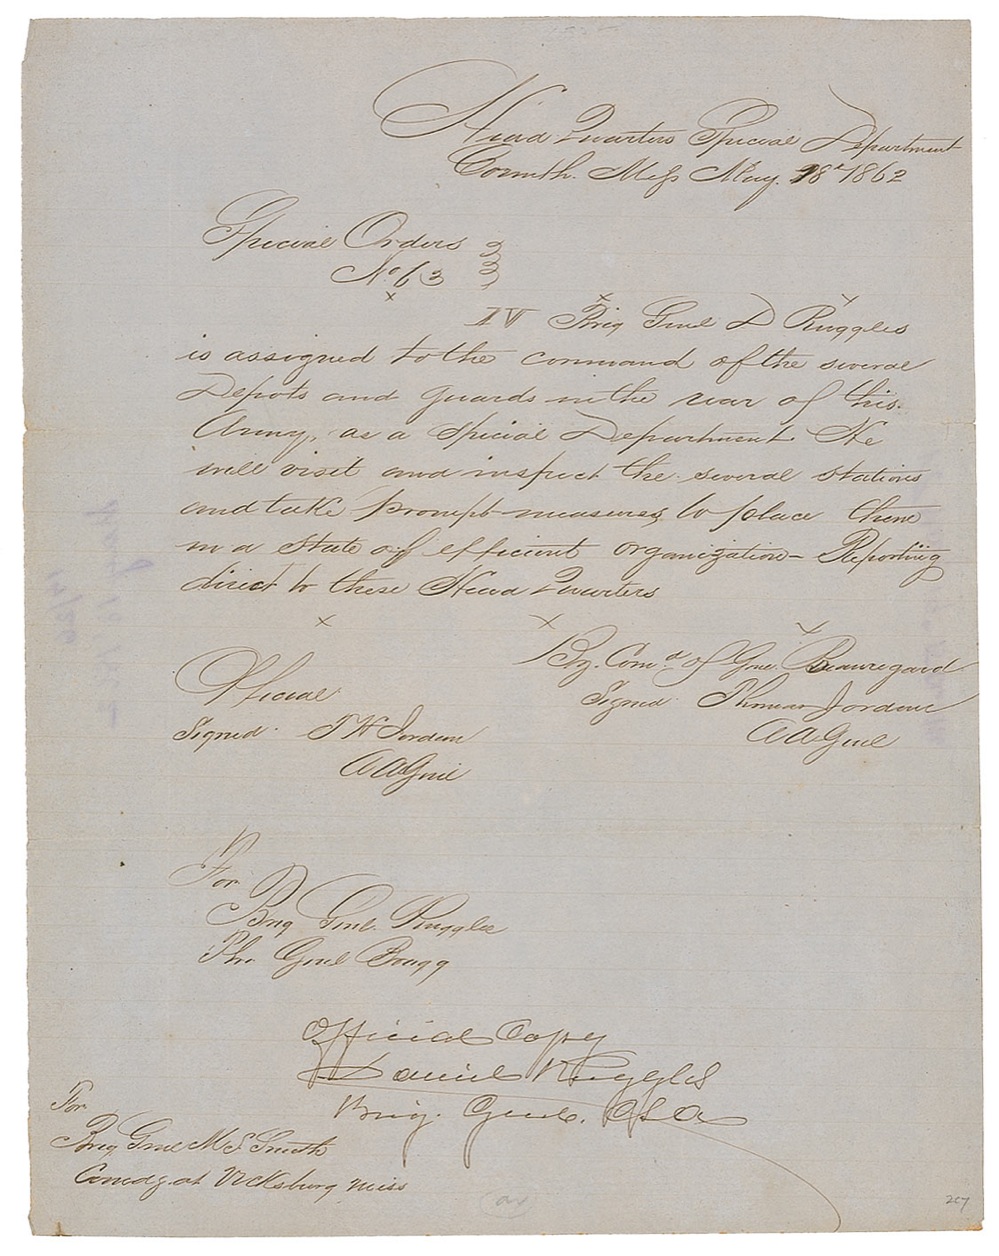 Head Quarters Special Department
Corinth. Miss May. 18th 1862
Special Orders
No 63
x x x
IV Brig Genl D Ruggles
is assigned to the command of the several
Depots and guards in the rear of this
Army, as a special Department. He
will visit and inspect the several stations
and take prompt measures to place them
in a state of efficient organization— Reporting
direct to these Head Quarters
x x x
By. Comd. of Genl. Beauregard
Official
Signed Thomas Jordan
Signed T H Jordan
A A Genl
A A Genl
For
Brig Genl. Ruggles
Thr. Genl Bragg
Official Copy
Daniel Ruggles
Brig. Genl. C S A
For
Brig Genl M L Smith
Comdg. at Vicksburg Miss
267